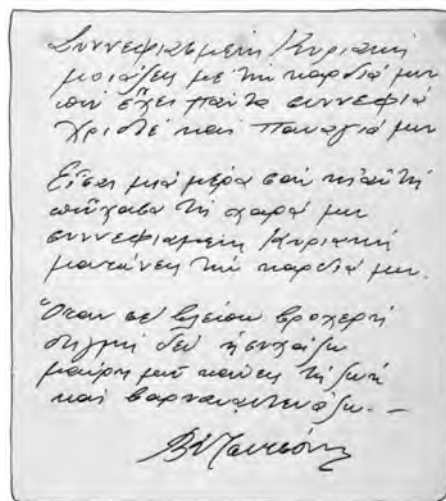 Συννεφιασμένη Κυριακή
μοιάζεις με τήν καρδιά μου
πού ἔχει πάντα συννεφιά
Χριστέ καί Παναγιά μου
Εἶσαι μιά μέρα σάν κι' αὐτή
πού 'χασα τή χαρά μου
συννεφιασμένη Κυριακή
ματώνεις τήν καρδιά μου.
Ὅταν σέ βλέπω βροχερή
στιγμή δέν ἡσυχάζω
μαύρη μοῦ κάνεις τή ζωή
καί βαρναστενάζω. —
Β. Τσιτσάνης